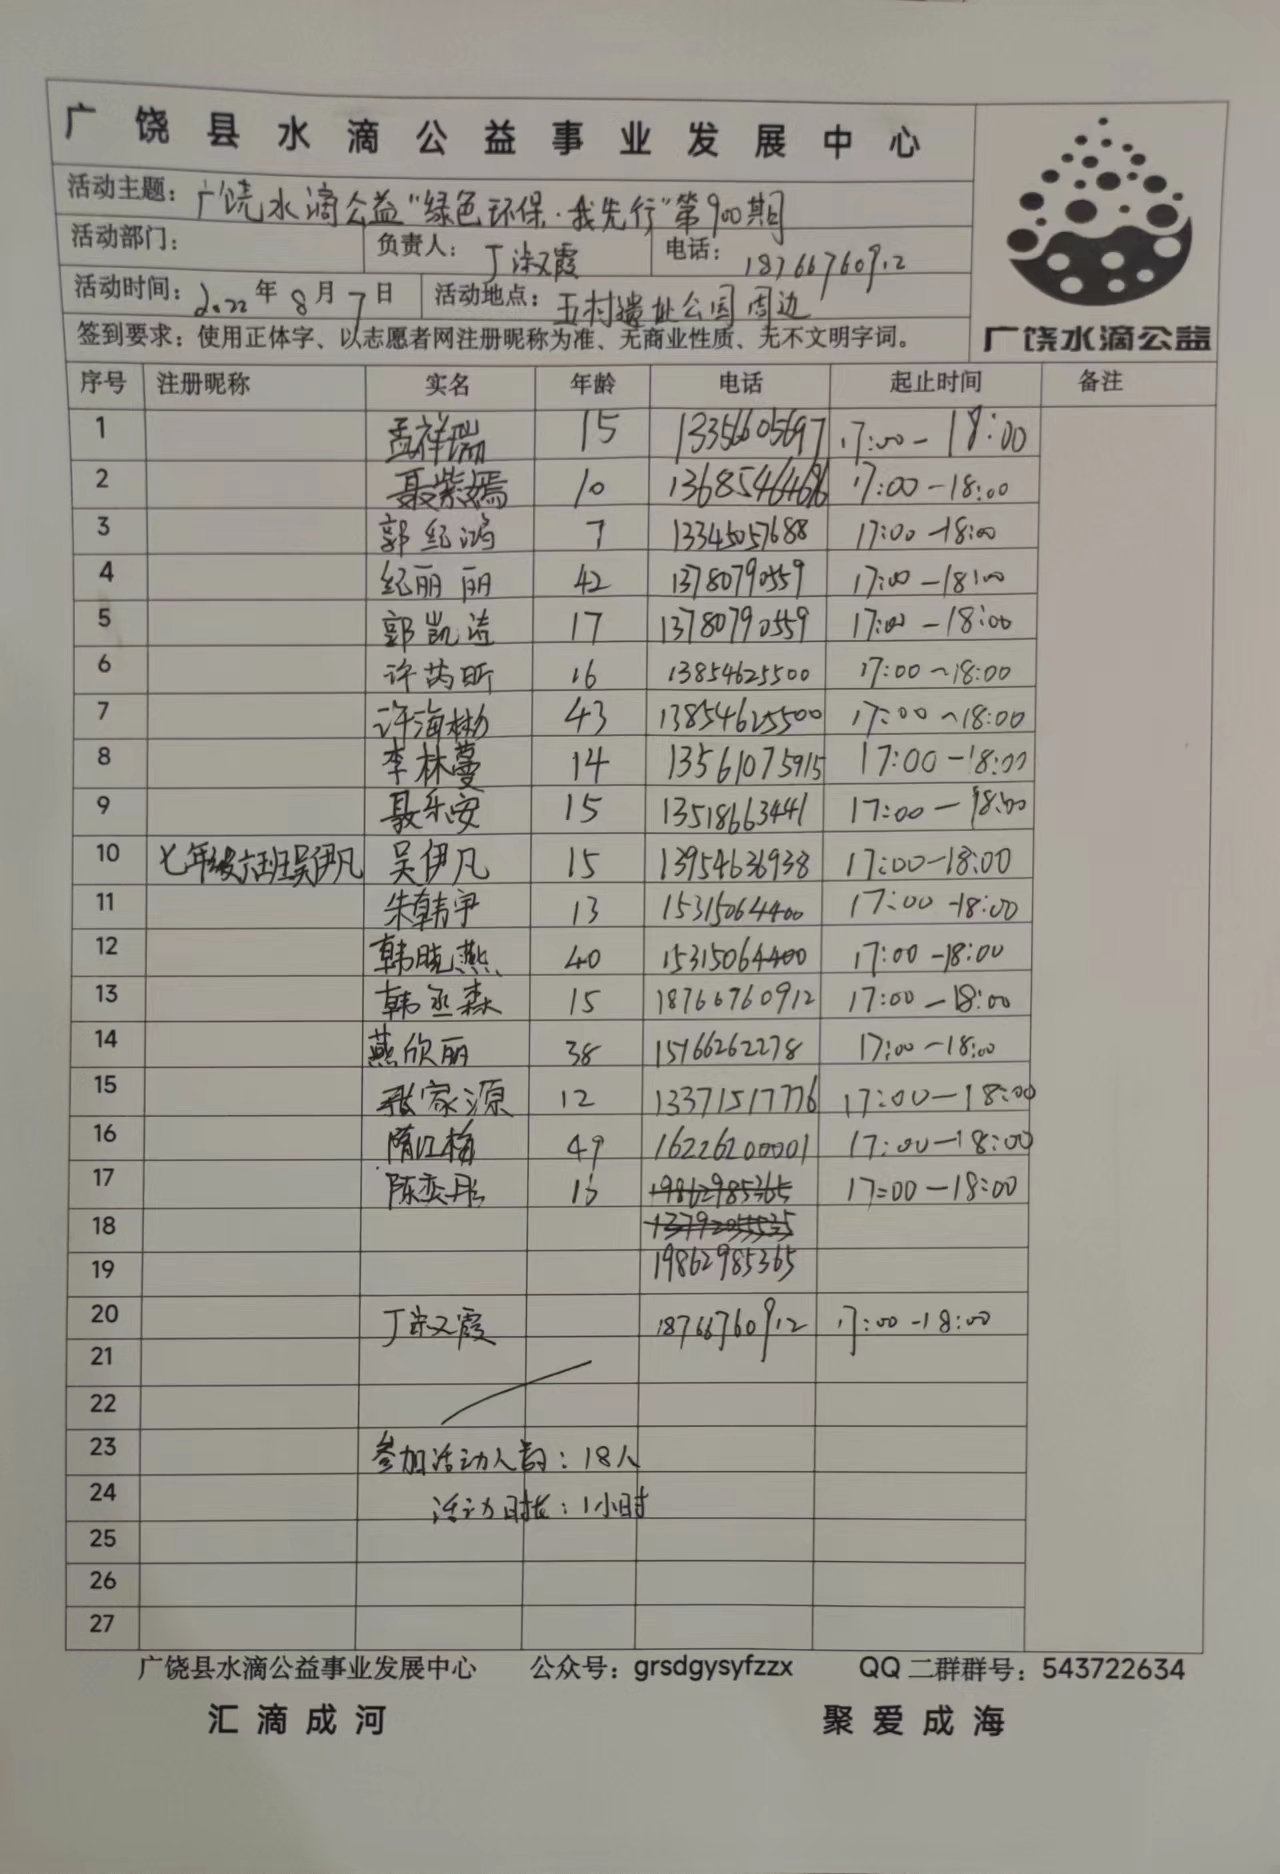 广饶县水滴公益事业发展中心
活动主题：广饶水滴公益"绿色环保·我先行"第900期
活动部门： 负责人：丁淑霞 电话：18766760912
活动时间：2022年8月7日 活动地点：五村遗址公园周边
签到要求：使用正体字、以志愿者网注册昵称为准、无商业性质、无不文明字词。
广饶水滴公益
序号 注册昵称 实名 年龄 电话 起止时间 备注
1 孟祥瑞 15 13356605697 17:00-18:00
2 聂紫嫣 10 17:00-18:00
3 郭纪鸿 7 13345057688 17:00-18:00
4 纪丽丽 42 13780790559 17:00-18:00
5 郭凯 17 13780790559 17:00-18:00
6 许芮昕 16 13854625500 17:00~18:00
7 许海彬 43 13854625500 17:00~18:00
8 李林蔓 14 13561075915 17:00-18:00
9 聂乐安 15 13518663441 17:00-18:00
10 七年级六班吴伊凡 吴伊凡 15 13954636938 17:00-18:00
11 朱韩宇 13 15315064400 17:00-18:00
12 韩晓燕 40 15315064400 17:00-18:00
13 韩丞森 15 18766760912 17:00-18:00
14 燕欣丽 38 15166262278 17:00-18:00
15 张家源 12 13371517776 17:00-18:00
16 隋江梅 49 16226200001 17:00-18:00
17 陈奕彤 13 19862985365 17:00-18:00
18 13792055535
19 19862985365
20 丁淑霞 18766760912 17:00-18:00
21
22
23 参加活动人数：18人
24 活动时长：1小时
25
26
27
广饶县水滴公益事业发展中心 公众号：grsdgysyfzzx QQ二群群号：543722634
汇滴成河 聚爱成海